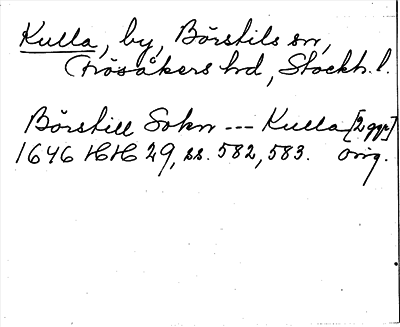 Kulla, by, Börstils sn,
Frösåkers hd, Stockh. l.
Börstill Sokn --- Kulla [2 ggr]
1646 HH 29, ss. 582, 583. orig.